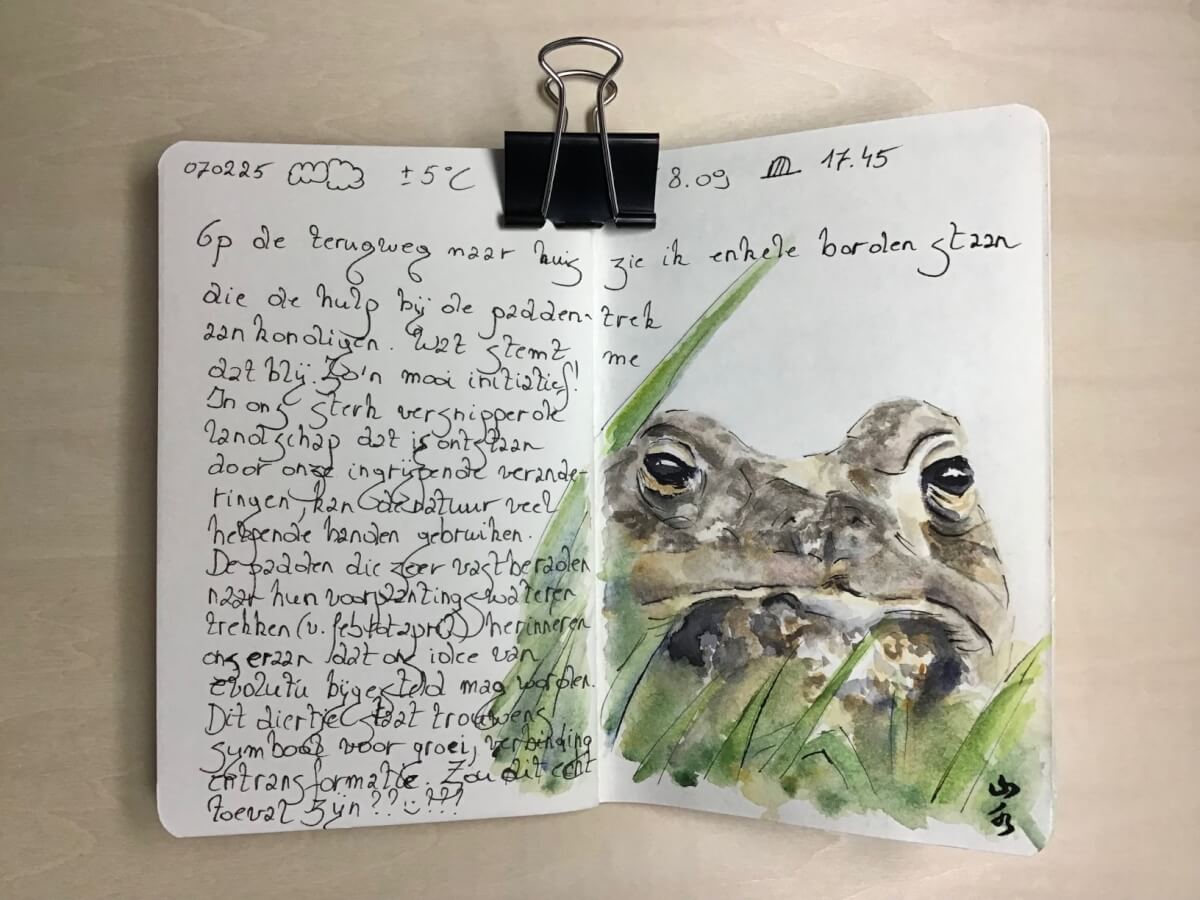 070225 ± 5°C 8.09 17.45
Op de terugweg naar huis zie ik enkele borden staan
die de hulp bij de padden-trek
aankondigen. Wat stemt me
dat blij. Zo'n mooi initiatief!
In ons sterk versnipperde
landschap dat is ontstaan
door onze ingrijpende verande-
ringen, kan de natuur veel
helpende handen gebruiken.
De padden die zeer vastberaden
naar hun voortplantingswateren
trekken (v. feb tot april) herinneren
ons eraan dat ons idee van
evolutie bijgesteld mag worden.
Dit diertje staat trouwens
symbool voor groei, verbinding
en transformatie. Zou dit echt
toeval zijn ?? ???
山